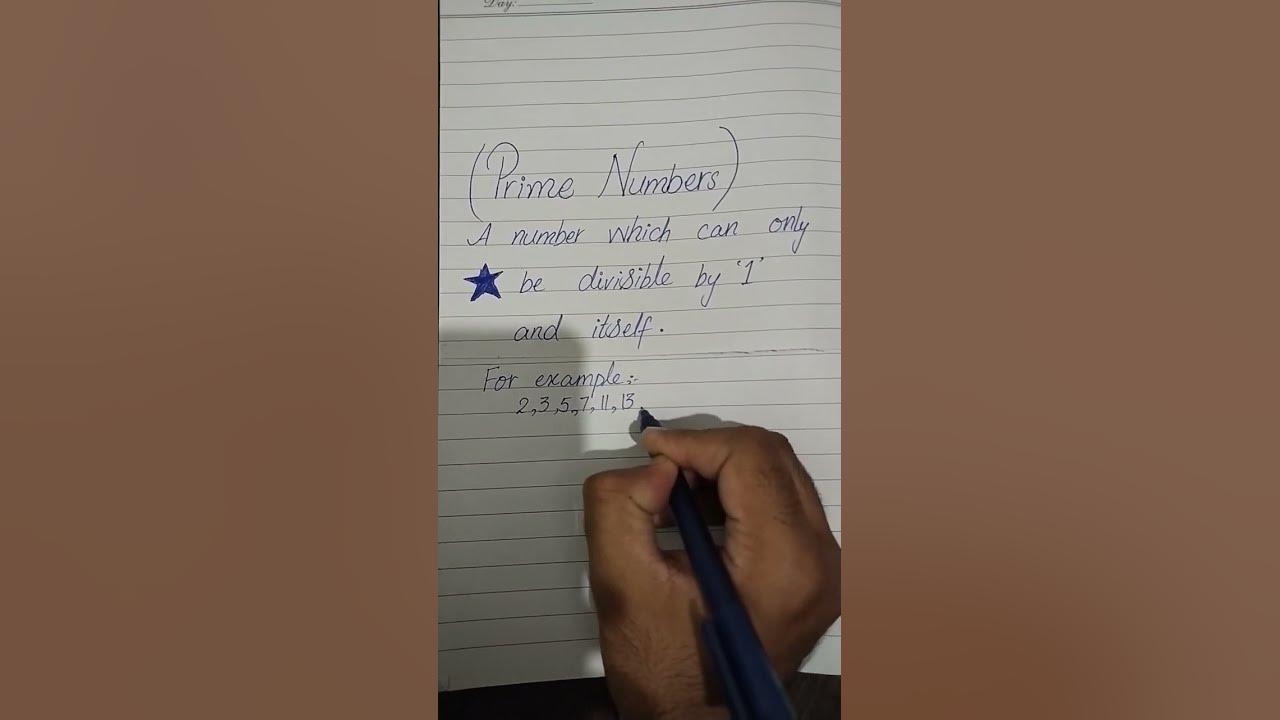 Day:
(Prime Numbers)
A number which can only
be divisible by '1'
and itself.
For example:-
2,3,5,7,11,13,